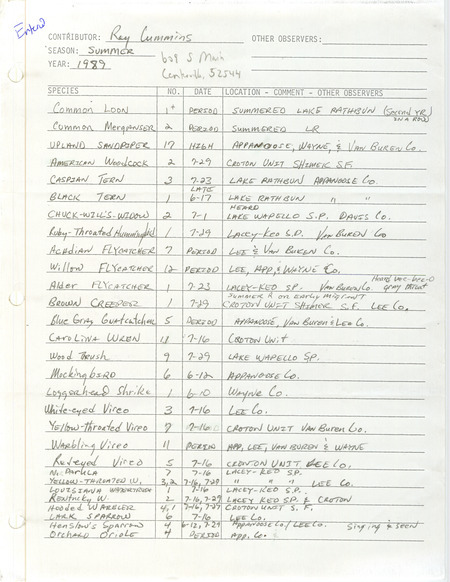 Entered
CONTRIBUTOR: Ray Cummins OTHER OBSERVERS:
SEASON: SUMMER 609 S Main
YEAR: 1989 Centerville, 52544
SPECIES NO. DATE LOCATION - COMMENT - OTHER OBSERVERS
Common Loon 1+ PERIOD SUMMERED LAKE RATHBUN (Second YR IN A ROW)
Common Merganser 2 PERIOD SUMMERED LR
UPLAND SANDPIPER 17 HIGH APPANOOSE, WAYNE, & VAN BUREN CO.
AMERICAN WOODCOCK 2 7-29 CROTON UNIT SHIMEK S.F.
CASPIAN TERN 3 7-23 LAKE RATHBUN APPANOOSE CO.
BLACK TERN 1 LATE 6-17 LAKE RATHBUN " "
CHUCK-WILL'S-WIDOW 2 7-1 HEARD LAKE WAPELLO S.P. DAVIS CO.
Ruby-Throated Hummingbird 1 7-29 LACEY-KEO S.P. VAN BUREN CO
ACADIAN FLYCATCHER 7 PERIOD LEE & VAN BUREN CO.
Willow FLYCATCHER 12 PERIOD LEE, APP, & WAYNE CO.
Alder FLYCATCHER 1 7-23 LACEY-KEO SP. VAN BUREN CO. Heard gray throat
BROWN CREEPER 1 7-29 SUMMER R or EARly MIGRANT CROTON UNIT SHIMEK S.F. LEE CO.
Blue Gray Gnatcatcher 5 PERIOD APPANOOSE, VAN BUREN & LEE CO.
CAROLINA WREN 11 7-16 CROTON UNIT
Wood Thrush 9 7-29 LAKE WAPELLO SP.
Mockingbird 6 6-12 APPANOOSE CO.
Loggerhead Shrike 1 6-10 WAYNE CO.
White-eyed Vireo 3 7-16 LEE CO.
Yellow-Throated Vireo 7 7-16 CROTON UNIT VAN BUREN CO.
Warbling Vireo 11 PERIOD APP, LEE, VAN BUREN & WAYNE
Red-eyed Vireo 5 7-16 CROTON UNIT LEE CO.
N. Parula 7 7-16 LACEY-KEO SP.
YELLOW-THROATED W. 3,2 7-16, 7-29 " " " LEE CO.
LOUISIANA WATERTHRUSH 1 7-16 LACEY-KEO S.P.
Kentucky W 2 7-16, 7-29 LACEY KEO SP & CROTON
HOODED WARBLER 4,1 7-16, 7-29 CROTON UNIT S.F.
LARK SPARROW 6 7-16 LEE CO.
Henslow's Sparrow 4 6-12, 7-29 APPANOOSE CO/LEE CO. Singing & seen
Orchard Oriole 4 PERIOD APP. CO.